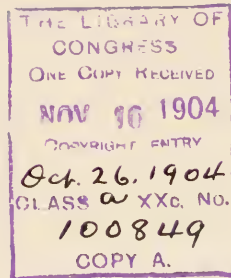 THE LIBRARY OF
CONGRESS
ONE COPY RECEIVED
NOV 16 1904
COPYRIGHT ENTRY
Oct. 26. 1904
CLASS a XXc. No.
100849
COPY A.